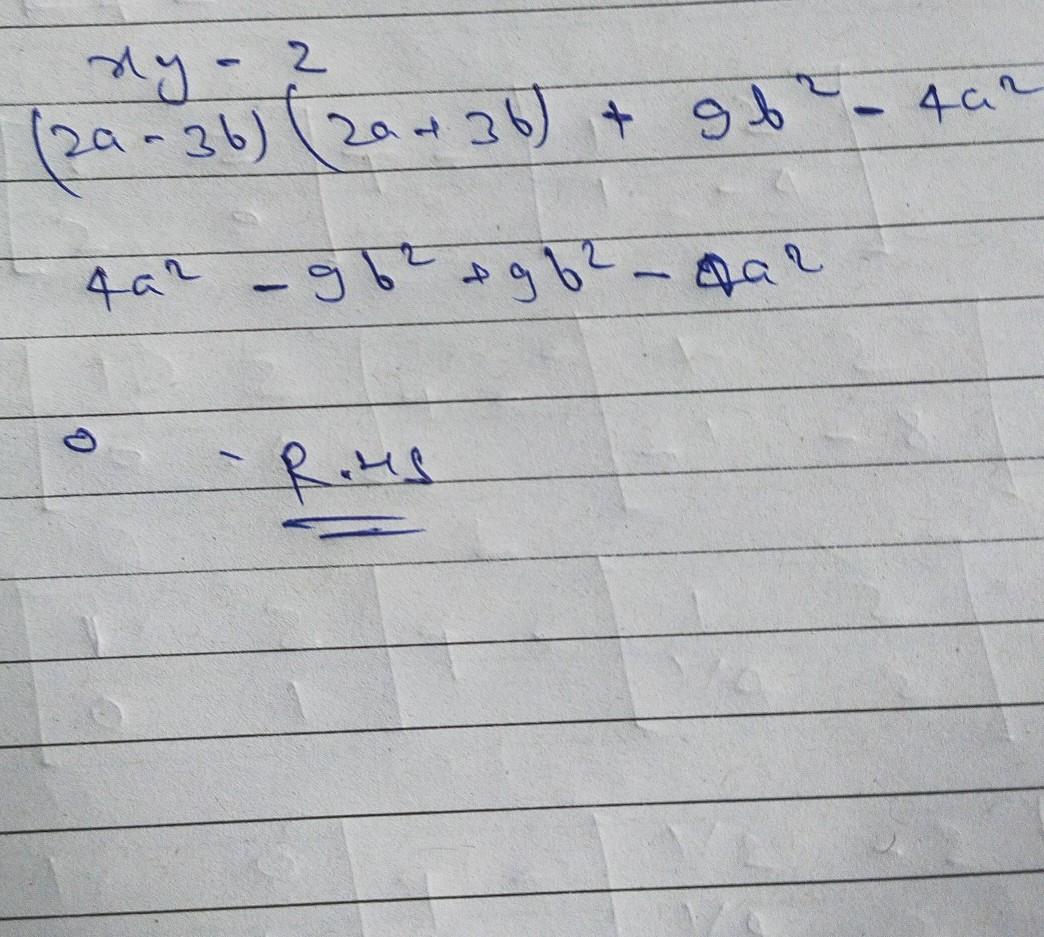 xy - 2
(2a - 3b) (2a + 3b) + 9b² - 4a²
4a² - 9b² + 9b² - 4a²
0 - R.HS